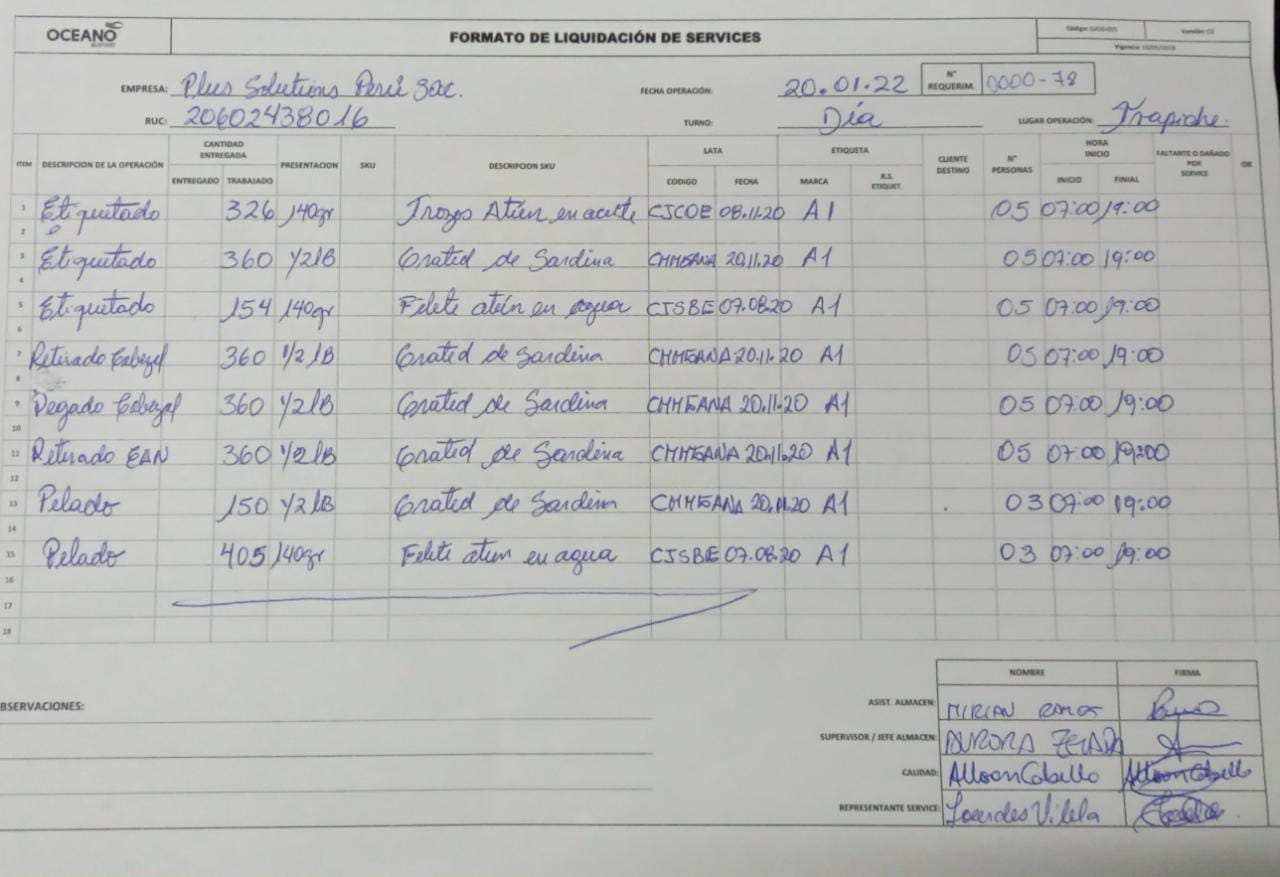 OCEANO
SEAFOOD
FORMATO DE LIQUIDACIÓN DE SERVICES
Versión: 02
EMPRESA: Plus Solutions Perú sac.
FECHA OPERACIÓN: 20.01.22
N° REQUERIM. 0000-78
RUC: 20602438016
TURNO: Día
LUGAR OPERACIÓN: Trapiche.
ITEM DESCRIPCION DE LA OPERACIÓN CANTIDAD ENTREGADA PRESENTACION SKU DESCRIPCION SKU LATA ETIQUETA CLIENTE DESTINO N° PERSONAS HORA INICIO FALTANTE O DAÑADO POR SERVICE OK
ENTREGADO TRABAJADO CODIGO FECHA MARCA R.S. ETIQUET. INICIO FINIAL
1 Etiquetado 326 140gr Trozos Atún en aceite CJCOE 08.11.20 A1 05 07:00 19:00
2
3 Etiquetado 360 1/2 lB Grated de Sardina 20.11.20 A1 05 07:00 19:00
4
5 Etiquetado 154 140gr Filete atún en agua CJSBE 07.08.20 A1 05 07:00 19:00
6
7 Retirado Cabezal 360 1/2 lB Grated de Sardina 20.11.20 A1 05 07:00 19:00
8
9 Pegado Cabezal 360 1/2 lB Grated de Sardina 20.11.20 A1 05 07:00 19:00
10
11 Retirado EAN 360 1/2 lB Grated de Sardina 20.11.20 A1 05 07:00 19:00
12
13 Pelado 150 1/2 lB Grated de Sardina 20.11.20 A1 03 07:00 19:00
14
15 Pelado 405 140gr Filete atún en agua CJSBE 07.08.20 A1 03 07:00 19:00
16
17
18
BSERVACIONES:
NOMBRE FIRMA
ASIST. ALMACEN: MIRIAN RAMOS
SUPERVISOR / JEFE ALMACEN: AURORA
CALIDAD: Allison Cabello Allison Cabello
REPRESENTANTE SERVICE: Lourdes Vilela